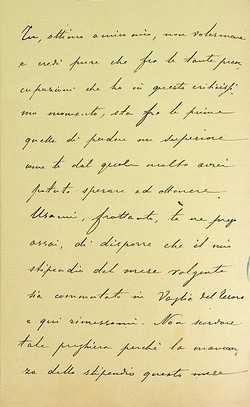 Tu, ottimo amico mio, non volermene
e credi pure che fra le tante preoc
cupazioni che ho in questo criticissi
mo momento, sta fra le prime
quella di perdere un superiore
come te dal quale molto avrei
potuto sperare ed ottenere.
Usami, frattanto, te ne prego
assai, di disporre che il mio
stipendio del mese volgente
sia commutato in Vaglia del Tesoro
e qui rimessomi. Non scordare
tale preghiera perchè la mancan
za dello stipendio questo mese